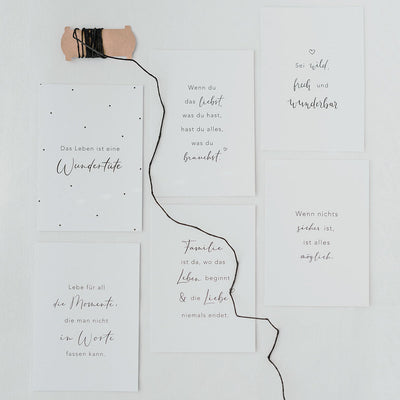 Das Leben ist eine
Wundertüte
Wenn du
das liebst,
was du hast,
hast du alles,
was du
brauchst.
Sei wild,
frech und
wunderbar
Lebe für all
die Momente,
die man nicht
in Worte
fassen kann.
Familie
ist da, wo das
Leben beginnt
& die Liebe
niemals endet.
Wenn nichts
sicher ist,
ist alles
möglich.